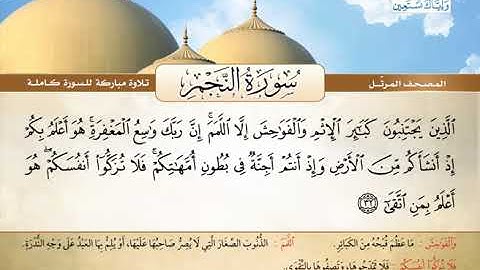 وَإِيَّاكَ نَسْتَعِينُ
المصحف المرتّل
سُورَةُ النَّجْمِ
تلاوة مباركة للسورة كاملة
الَّذِينَ يَجْتَنِبُونَ كَبَائِرَ الْإِثْمِ وَالْفَوَاحِشَ إِلَّا اللَّمَمَ ۚ إِنَّ رَبَّكَ وَاسِعُ الْمَغْفِرَةِ ۚ هُوَ أَعْلَمُ بِكُمْ
إِذْ أَنشَأَكُم مِّنَ الْأَرْضِ وَإِذْ أَنتُمْ أَجِنَّةٌ فِي بُطُونِ أُمَّهَاتِكُمْ ۖ فَلَا تُزَكُّوا أَنفُسَكُمْ ۖ هُوَ
أَعْلَمُ بِمَنِ اتَّقَىٰ ﴿٣٢﴾
وَالْفَوَاحِشَ : مَا عَظُمَ قُبْحُهُ مِنَ الْكَبَائِرِ. اللَّمَمَ : الذُّنُوبَ الصِّغَارَ الَّتِي لَا يُصِرُّ صَاحِبُهَا عَلَيْهَا، أَوْ يُلِمُّ بِهَا الْعَبْدُ عَلَى وَجْهِ النُّدْرَةِ.
فَلَا تُزَكُّوا أَنفُسَكُمْ : فَلَا تَمْدَحُوهَا، وَتَصِفُوهَا بِالتَّقْوَى.